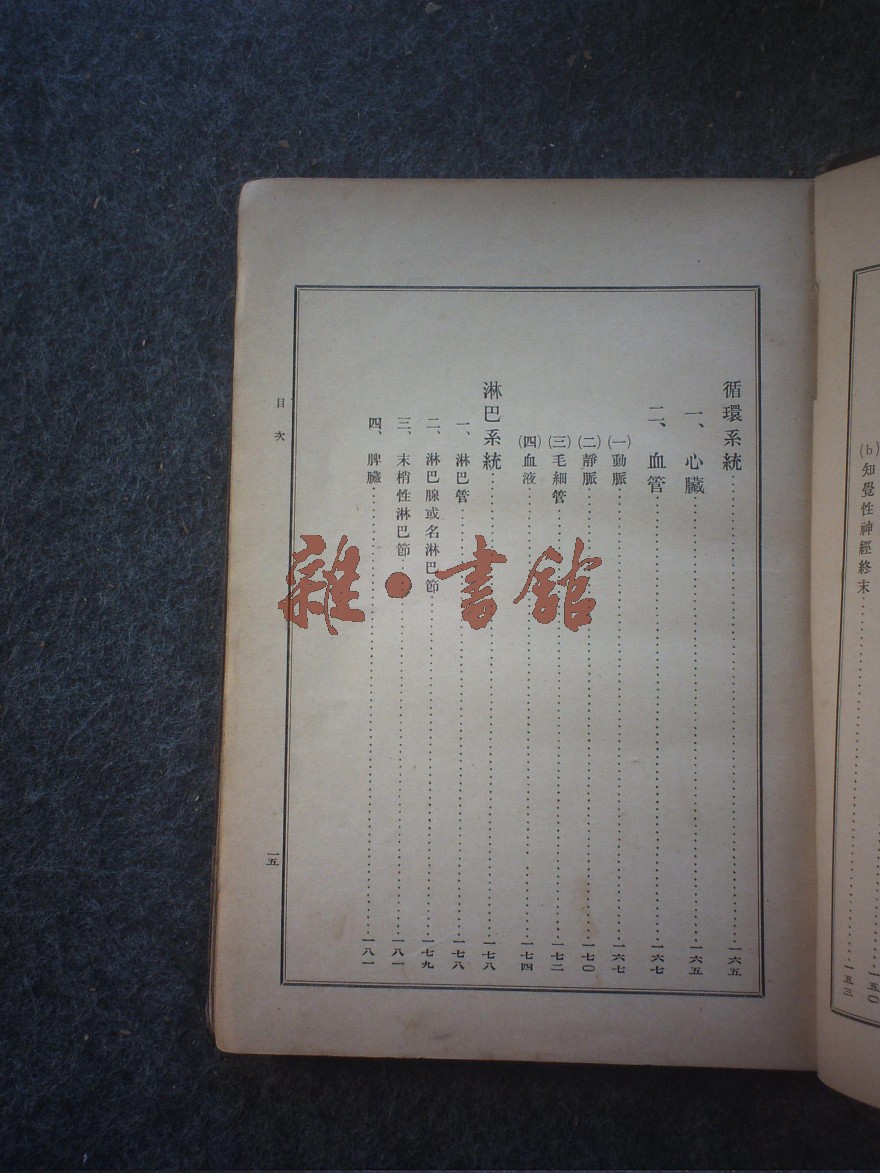 (b)知覺性神經終末
一五〇
一五三
循環系統……一六五
一、心臟……一六五
二、血管……一六七
(一)動脈……一六七
(二)靜脈……一七〇
(三)毛細管……一七二
(四)血液……一七四
淋巴系統……一七八
一、淋巴管……一七八
二、淋巴腺或名淋巴節……一七九
三、末梢性淋巴節……一八一
四、脾臟……一八一
目次
一五
雜·書館